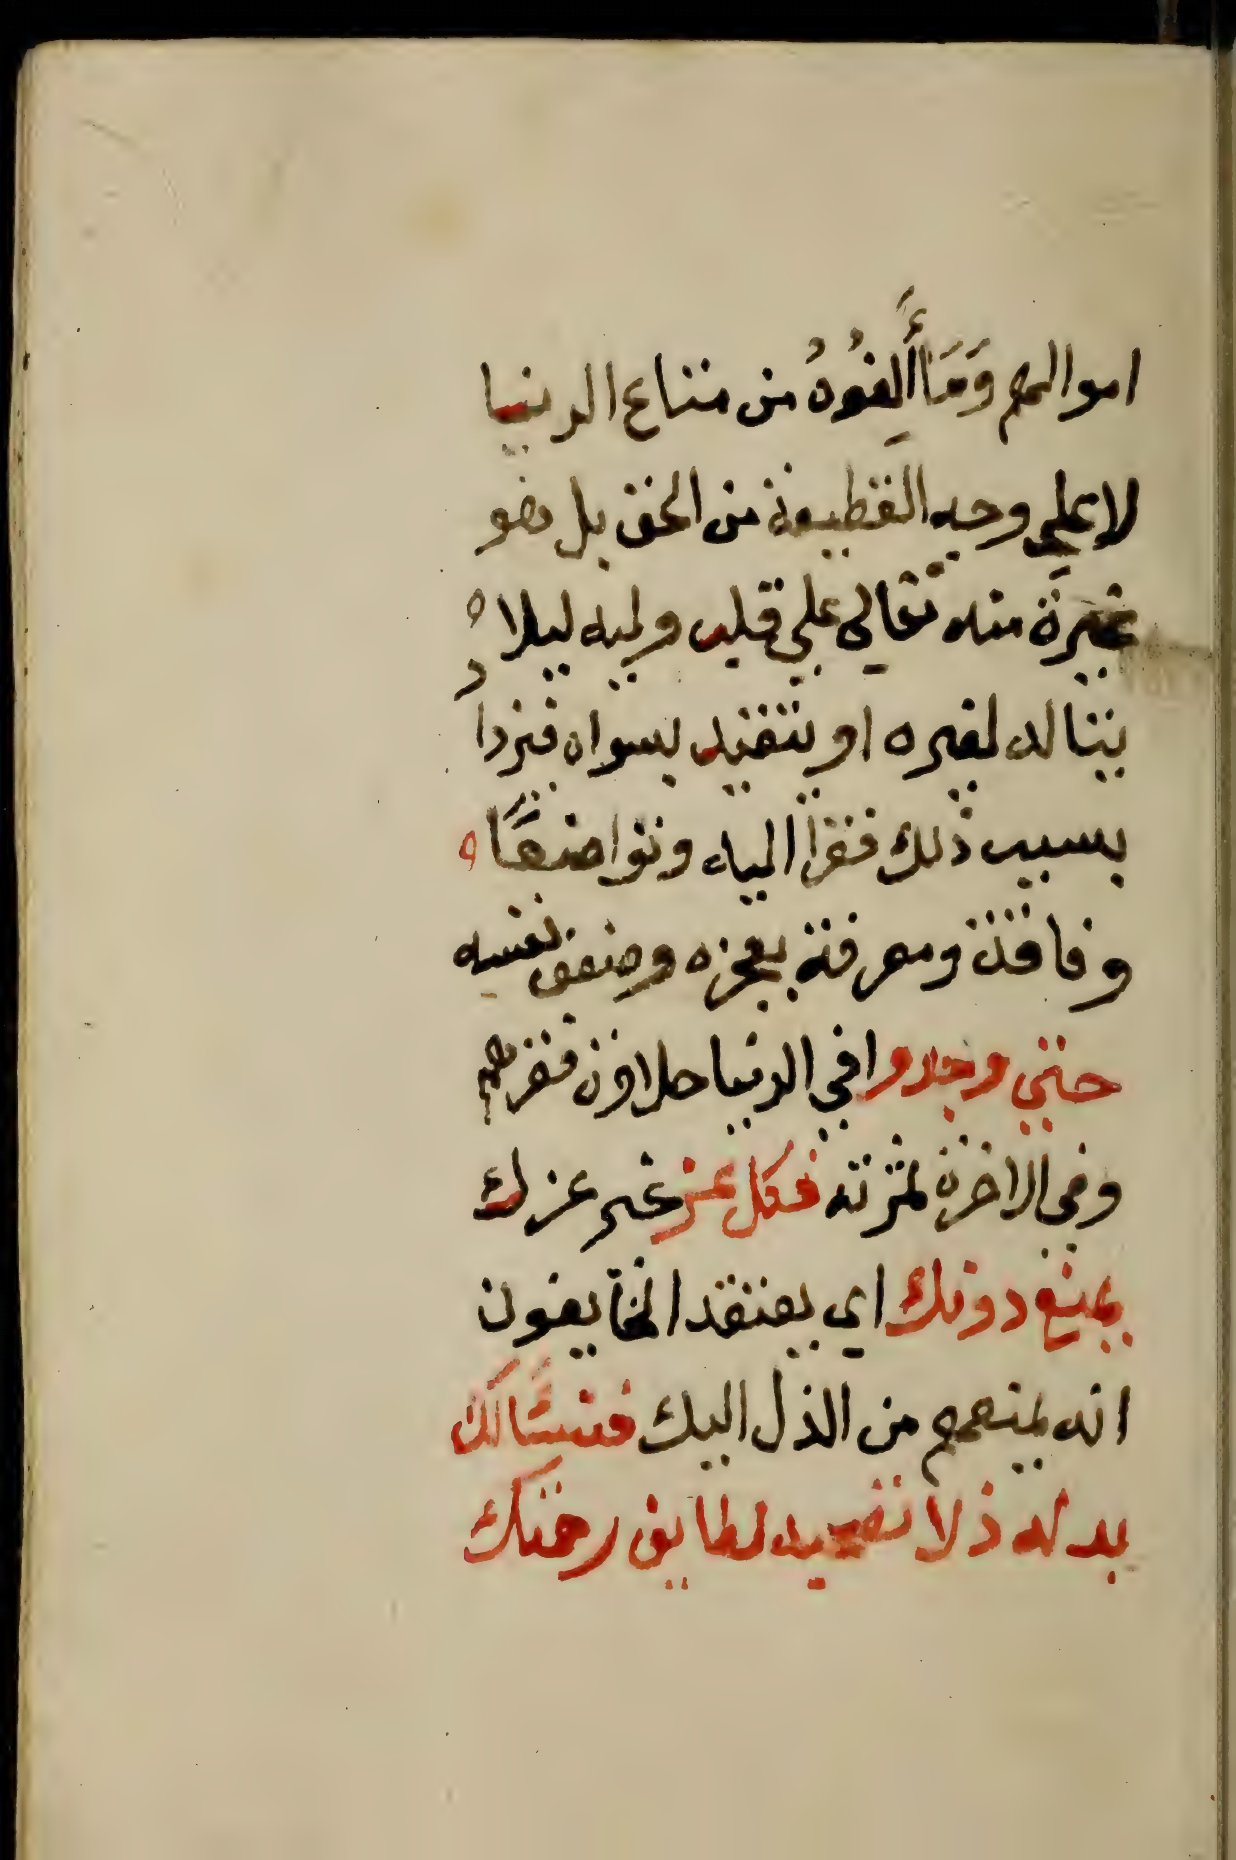 اموالهم وَمَا أَلِفُوهُ من متاع الدنيا
لا علي وجه القطيعة من الحق بل هو
غيرة منه تعالي علي قلب وليه ليلا
يتاله لغيره او يتقيد بسواه فيزداد
بسبب ذلك فقرا اليه وتواضعًا
وفاقة ومعرفة بعجزه وضعف نفسه
حتي وجدوا في الدنيا حلاوة فقرهم
وفي الاخرة ثمرته فكل عز غير عزك
يمنع دونك اي يعتقد الخايفون
انه يمنعهم من الذل اليك فنسئالك
بدله ذلا تصحبه لطايف رحمتك